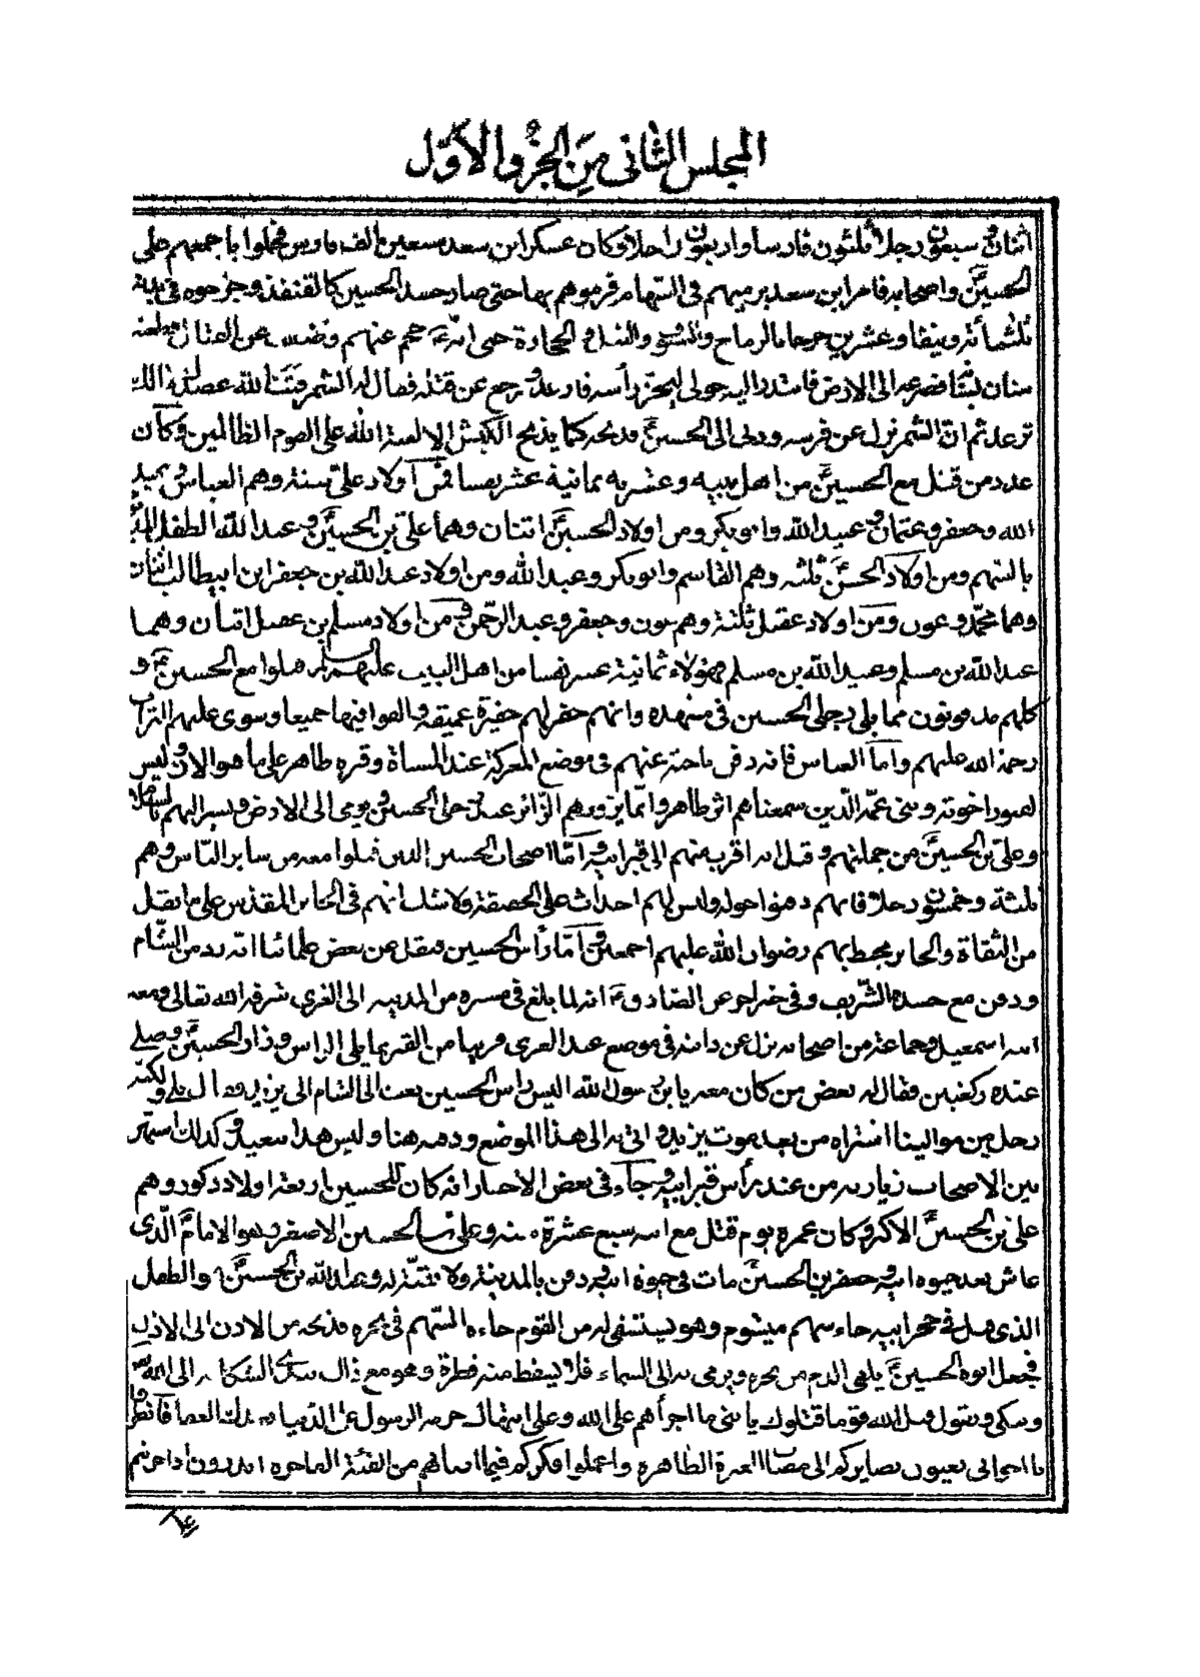 المجلس الثاني من الجزء الأول
اثنان و سبعون رجلا ثلثون فارسا واربعون راجلا وكان عسكر ابن سعد سبعين الف فارس فحملوا باجمعهم على
الحسين واصحابه فامر ابن سعد برميهم في السهام فرموهم بها حتى صار جسد الحسين كالقنفذ وجرحوه في بدنه
ثلثمائة ونيفا وعشرين جرحا بالرماح والسيوف والنبل والحجارة حتى انه حجم عنهم وضعف عن القتال فطعنه
سنان فصرعه الى الارض فابتدر اليه خولى ليحتز رأسه فارعد و رجع عن قتله فقال له الشمر فتتنا لله عضدك مالك
ترعد ثم ان الشمر نزل عن فرسه ودنى الى الحسين فذبحه كما يذبح الكبش الا لعنة الله على القوم الظالمين وكان
عدد من قتل مع الحسين من اهل بيته وعشيرته ثمانية عشر نفسا فمن اولاد على ستة وهم العباس وعبد
الله وجعفر وعثمان وعبيد الله وابو بكر ومن اولاد الحسين اثنان وهما على بن الحسين وعبد الله الطفل المذبوح
بالسهم ومن اولاد الحسن ثلثة وهم القاسم وابو بكر وعبد الله ومن اولاد عبد الله بن جعفر ابن ابيطالب اثنان
وهما محمد وعون ومن اولاد عقيل ثلثة وهم عون وجعفر وعبد الرحمن ومن اولاد مسلم بن عقيل اثنان وهما
عبد الله بن مسلم وعبيد الله بن مسلم فهؤلاء ثمانية عشر نفسا من اهل البيت عليهم السلام قتلوا مع الحسين و
كلهم مدفونون مما يلي رجلى الحسين في مشهده وانهم حفر لهم حفيرة عميقة والقوا فيها جميعا وسوى عليهم التراب
رحمة الله عليهم واما العباس فانه دفن ناحية عنهم في موضع المعركة عند المسناة وقبره ظاهر على ما هو الان وليس
لقبور اخوته وبني عمه الذين سميناهم اثر ظاهر وانما يزورهم الزائر عند رجلى الحسين ويومى الى الارض ويشير اليهم بالسلام
وعلى بن الحسين من جملتهم وقيل انه اقرب منهم الى قبر ابيه واما اصحاب الحسين الذين قتلوا معه من سائر الناس وهم
ثلثة وخمسون رجلا فانهم دفنوا حوله وليس لهم احداث على الحقيقة ولا شك انهم في الحائر المقدس على ما نقل
من الثقاة والحائر محيط بهم رضوان الله عليهم اجمعين واما رأس الحسين فنقل عن بعض علمائنا انه رد من الشام
ودفن مع جسده الشريف وفي خبر اخر عن الصادق انه لما بلغ في مسيره من المدينه الى الغرى شرفه الله تعالى ومعه
ابنه اسمعيل وجماعة من اصحابه نزل عن دابته في موضع عند الغرى قريبا من القبر مما يلى الراس وزار الحسين وصلى
عنده ركعتين فقال له بعض من كان معه يابن رسول الله اليس راس الحسين بعث الى الشام الى يزيد فقال بلى ولكنه
رجل من موالينا اشتراه من بعد موت يزيد واتى به الى هذا الموضع ودفنه هنا وليس هذا ببعيد وكذلك استمر
بين الاصحاب زيارته من عند رأس قبر ابيه وجاء في بعض الاخبار انه كان للحسين اربعة اولاد ذكور وهم
على بن الحسين الاكبر وكان عمره يوم قتل مع ابيه سبع عشرة سنه وعلى بن الحسين الاصغر وهو الامام الذي
عاش بعد حيوه ابيه وجعفر بن الحسين مات في حيوة ابيه ودفن بالمدينة ولا بقية له وعبد الله بن الحسين والطفل
الذى قتل في حجر ابيه جاء سهم ميشوم وهو يستسقى له من القوم جاءه السهم في نحره فذبحه من الاذن الى الاذن
فجعل ابوه الحسين يلقى الدم من نحره ويرمى به الى السماء فلا يسقط منه قطرة وهو مع ذلك الشكايه الى الله
ويبكى ويقول قتل الله قوما قتلوك يا بنى ما اجرأهم على الله وعلى انتهاك حرمة الرسول على الدنيا بعدك العفا فانظروا
يا اخوانى بعيون بصائركم الى مصاب العترة الطاهرة واعملوا افكاركم فيما اصابهم من الفئة الفاجره